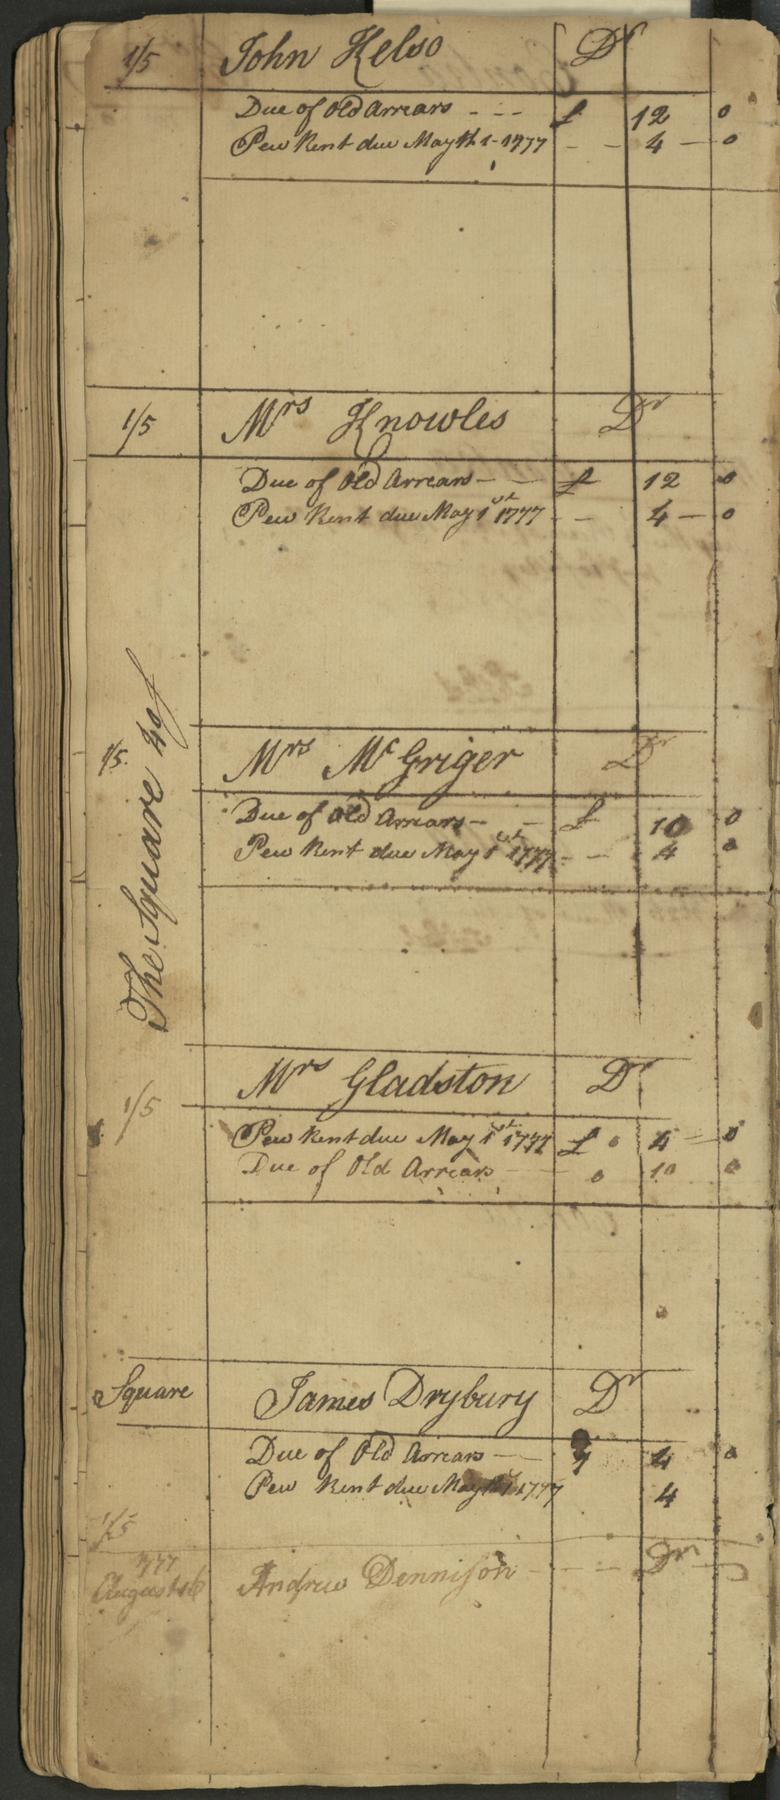 1/5 John Kelso Dr
Due of Old Arrears - - - £ 12 0
Pew Rent due May 1-1777 - - 4 - 0
1/5 Mrs Knowles Dr
Due of Old Arrears - - £ 12 0
Pew Rent due May 1st 1777 - 4 - 0
The Square
1/5 Mrs McGriger Dr
Due of Old Arrears - - £ 10 0
Pew Rent due May 1st 1777 - - 4 0
1/5 Mrs Gladston Dr
Pew Rent due May 1st 1777 £ 0 4 - 0
Due of Old Arrears - 0 10 0
Square James Drybury Dr
Due of Old Arrears - - 4 0
Pew Rent due May 1777 4
1/5
1777
August 16 Andrew Dennison - - - Dr